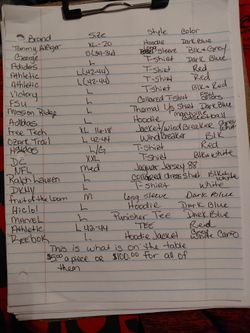 Brand Size Style Color
Tommy Hilfiger XL-20 Hoodie Dark Blue
George (34-36) Sleeve Blk & Grey
Adidas L T-shirt Dark Blue
Athletic L(42-44) T-shirt Red
Athletic L(42-44) T-shirt Red
Victory L T-shirt Blk & Grey
FSU L Collared T-shirt
Mission Ridge L Thermal Up Shirt Dark Blue
Adidas L Hoodie
Free Tech XL 16-18 Jacket/windbreaker
Ozark Trail L 42-44 windbreaker Blue
L/G T-shirt Red
DC XXL T-shirt Blk & white
NFL Med Jaguar Jersey 88
Ralph Lauren L collared dress shirt
DKNY L T-shirt White
Fruit of the Loom M Long sleeve Dark Blue
L Hoodie Dark Blue
Marvel L Punisher Tee Dark Blue
Athletic L 42-44 Tee Red
Reebok L Hoodie Jacket Camo
This is what is on the table
$5.00 a piece or $100.00 for all of
them